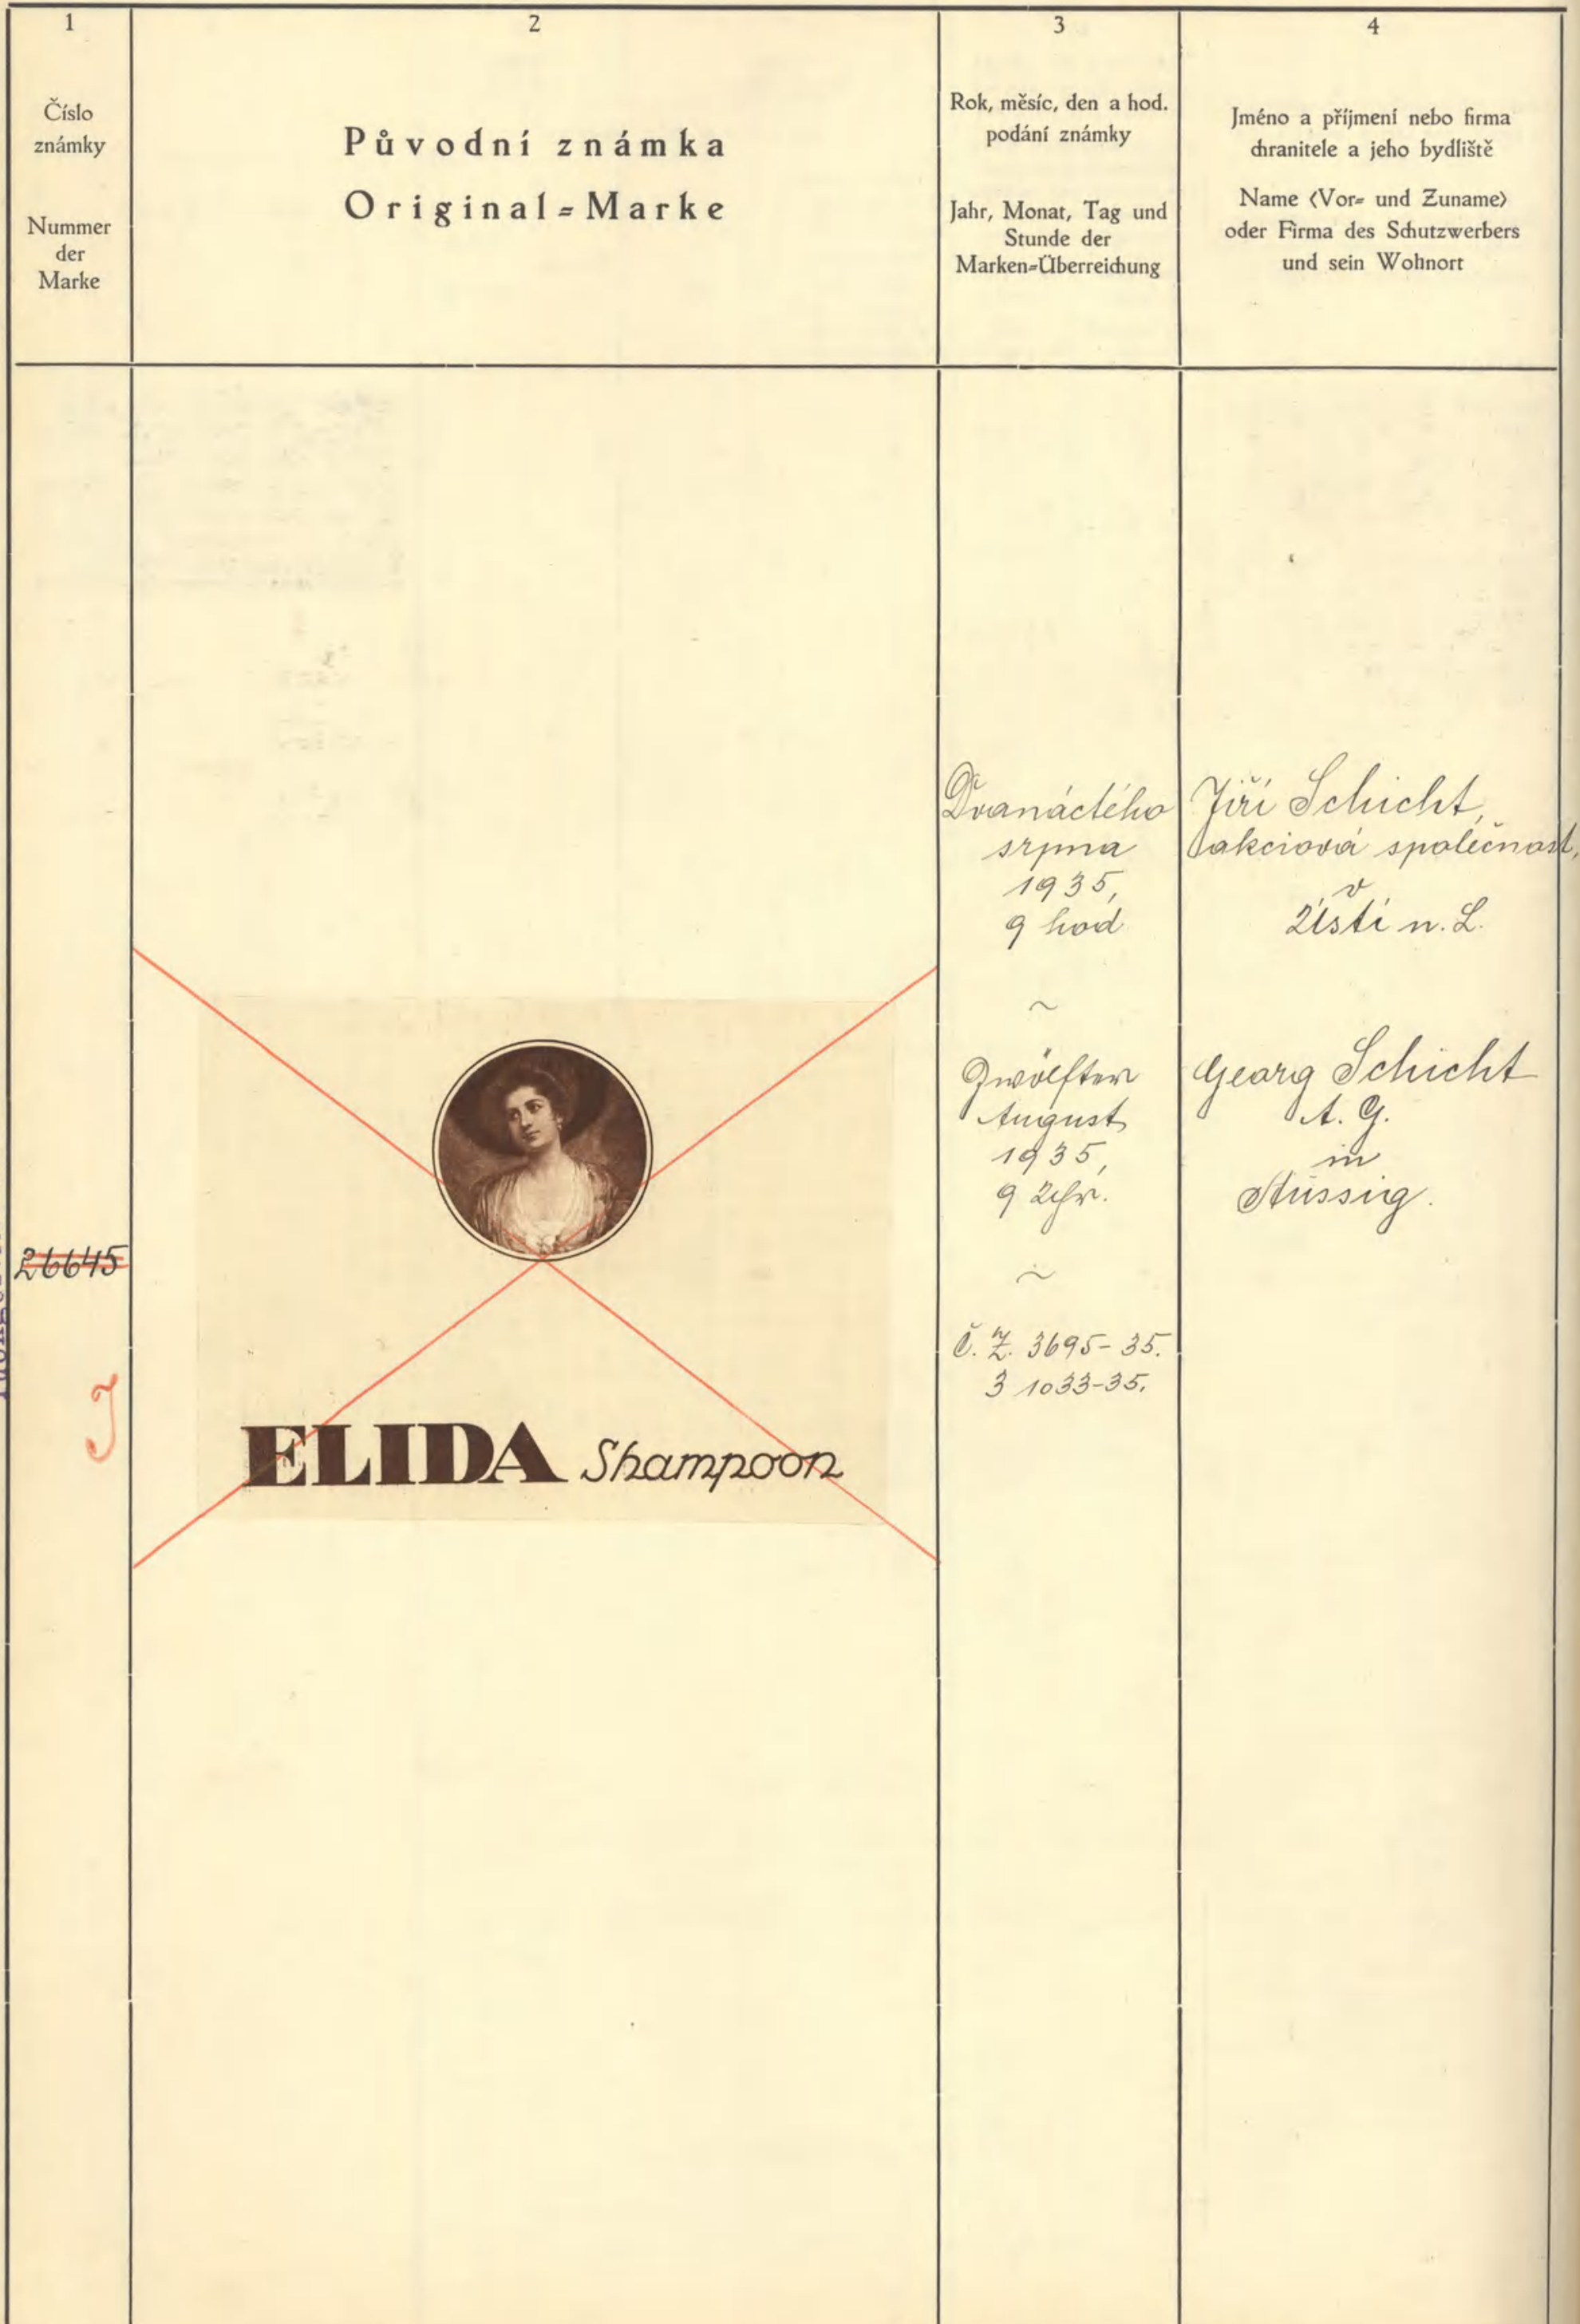 1
Číslo
známky
Nummer
der
Marke
2
Původní známka
Original=Marke
3
Rok, měsíc, den a hod.
podání známky
Jahr, Monat, Tag und
Stunde der
Marken=Überreichung
4
Jméno a příjmení nebo firma
chranitele a jeho bydliště
Name (Vor= und Zuname)
oder Firma des Schutzwerbers
und sein Wohnort
26645
J
ELIDA Shampoon
Dvanáctého
srpna
1935,
9 hod
~
Zwölfter
August
1935,
9 Uhr.
~
Č. Z. 3695-35.
3 1033-35.
Jiří Schicht,
akciová společnost,
v
Ústí n. L.
Georg Schicht
A. G.
in
Aussig.